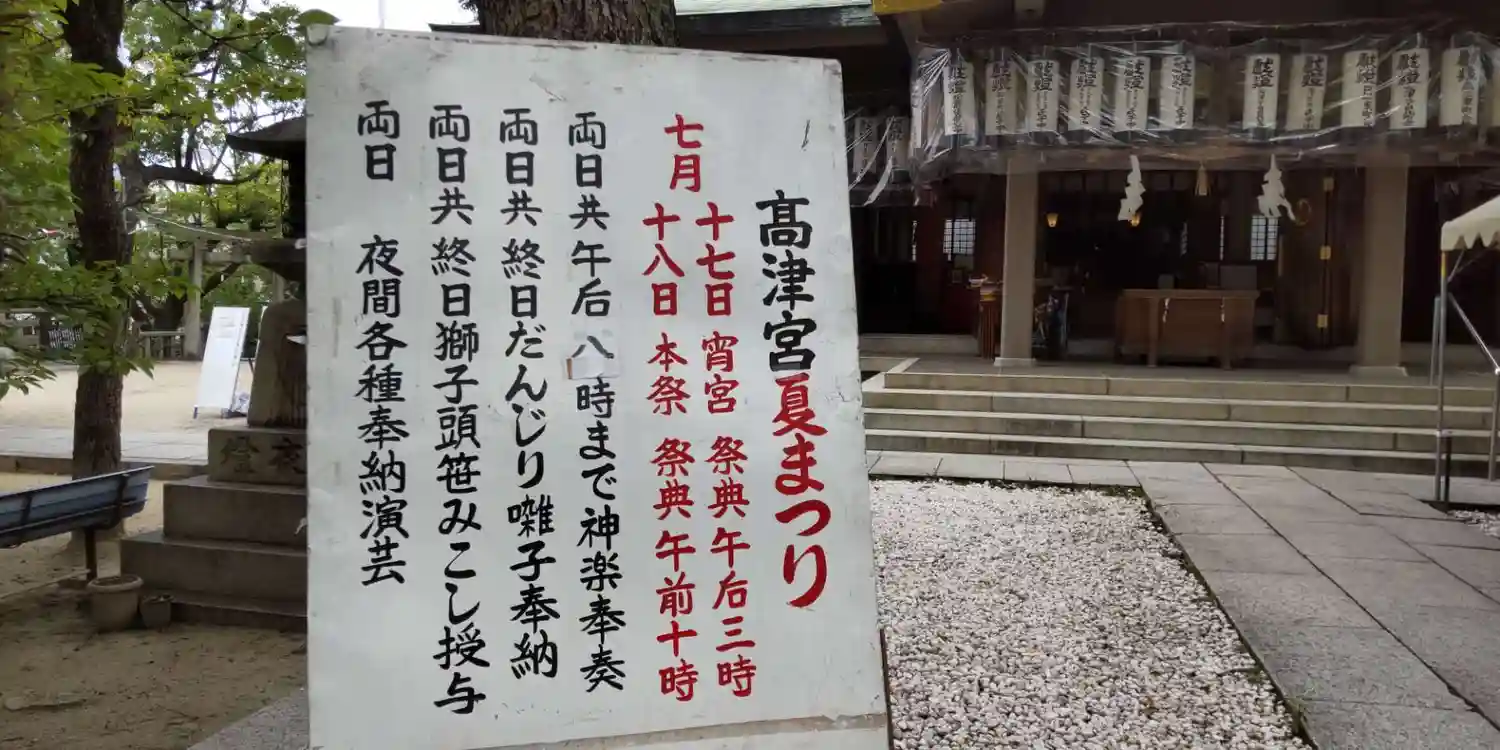 高津宮夏まつり
七月 十七日 宵宮 祭典 午后三時
十八日 本祭 祭典 午前十時
両日共 午后 八時まで神楽奉奏
両日共 終日だんじり囃子奉納
両日共 終日獅子頭笹みこし授与
両日 夜間各種奉納演芸
夜燈